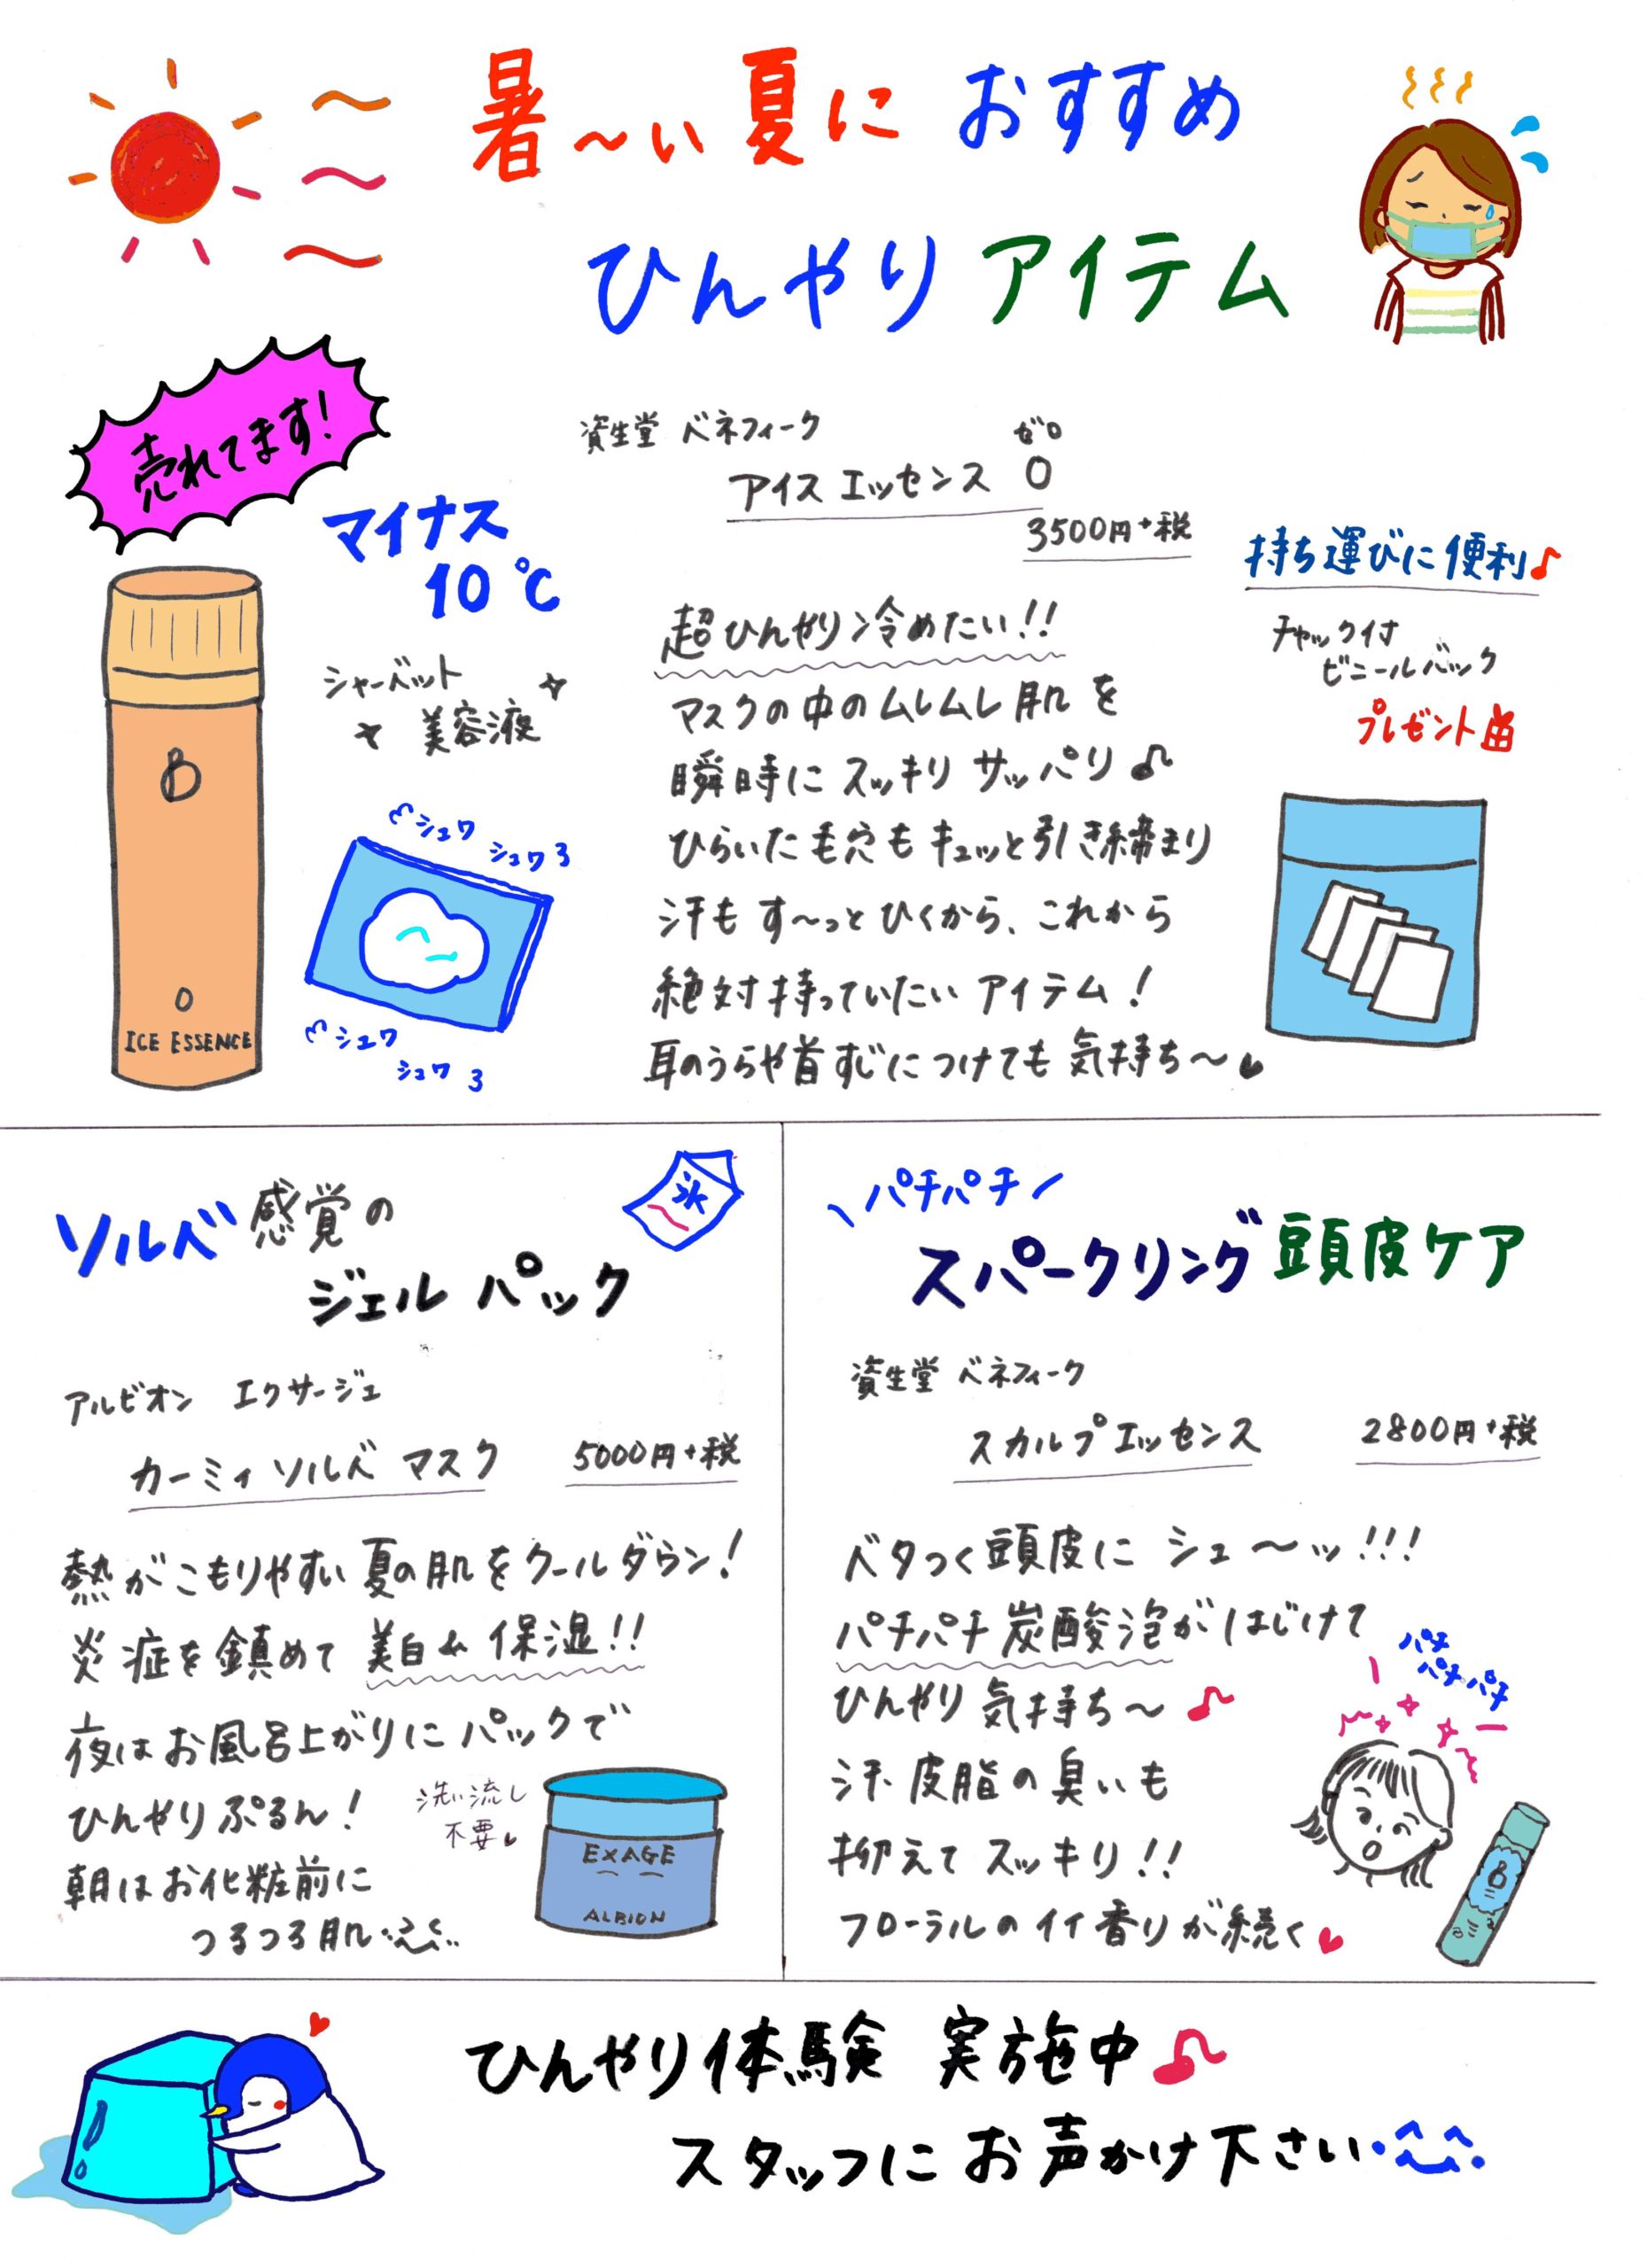 暑〜い夏におすすめ
ひんやりアイテム
売れてます!
マイナス
10℃
シャーベット
美容液
シュワ
シュワ
シュワ
シュワ
B
0
ICE ESSENCE
資生堂 ベネフィーク
ゼロ
アイスエッセンス 0
3500円+税
超ひんやり冷めたい!!
マスクの中のムレムレ肌を
瞬時にスッキリサッパリ♪
ひらいた毛穴もキュッと引き締まり
汗もす〜っとひくから、これから
絶対持っていたいアイテム!
耳のうらや首すじにつけても気持ち〜♥
持ち運びに便利♪
チャック付
ビニールバック
プレゼント
ソルベ感覚の
ジェルパック
氷
アルビオン エクサージュ
カーミィソルベ マスク 5000円+税
熱がこもりやすい夏の肌をクールダウン!
炎症を鎮めて美白&保湿!!
夜はお風呂上がりにパックで
ひんやりぷるん!
朝はお化粧前に
つるつる肌
洗い流し
不要♥
EXAGE
ALBION
\パチパチ/
スパークリング頭皮ケア
資生堂 ベネフィーク
スカルプエッセンス 2800円+税
ベタつく頭皮にシュ〜ッ!!!
パチパチ炭酸泡がはじけて
ひんやり気持ち〜♪
汗、皮脂の臭いも
抑えてスッキリ!!
フローラルのイイ香りが続く♥
パチ
パチパチ
B
ひんやり体験 実施中♪
スタッフにお声かけ下さい